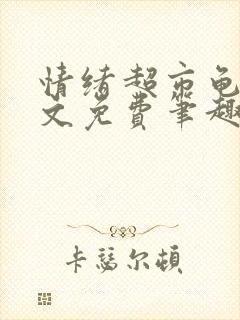 情绪超市
文免费笔趣
卡瑟尔顿